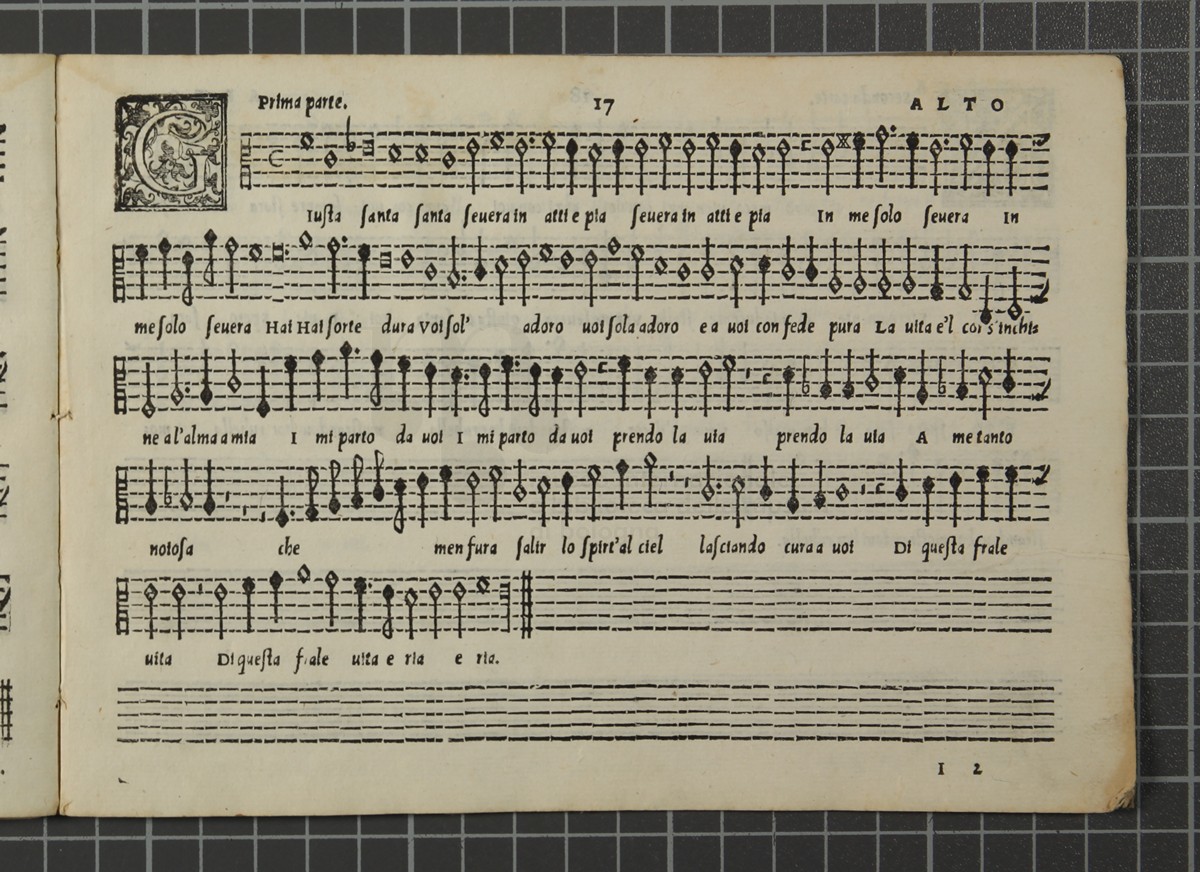 Prima parte. 17 ALTO
GIusta santa santa seuera in atti e pia seuera in atti e pia In me solo seuera In
me solo seuera Hai Hai sorte dura Voi sol' adoro uoi sola adoro e a uoi con fede pura La uita e'l cor s'inchi
ne a l'alma a mia I mi parto da uoi I mi parto da uoi prendo la uia prendo la uia A me tanto
noiosa che men fura salir lo spirt'al ciel lasciando cura a uoi Di questa frale
uita Di questa frale uita e ria e ria.
I 2